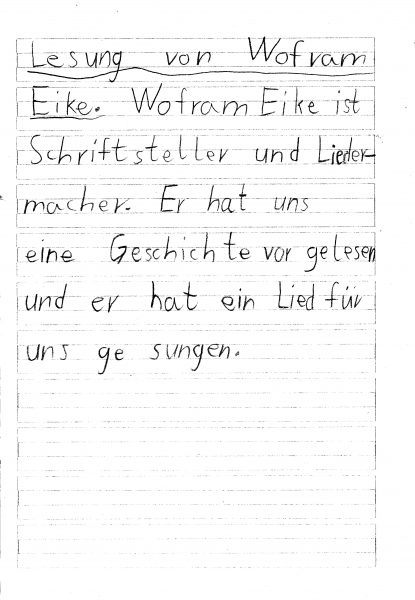 Lesung von Wofram
Eike. Wofram Eike ist
Schriftsteller und Lieder-
macher. Er hat uns
eine Geschichte vor gelesen
und er hat ein Lied für
uns ge sungen.